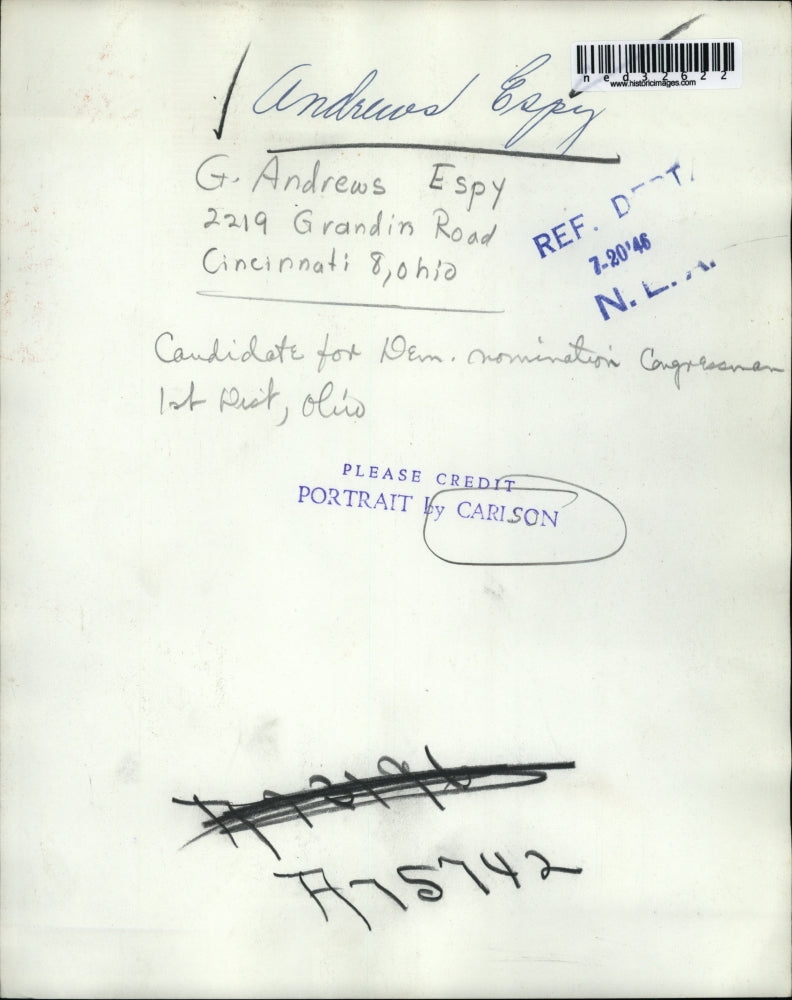 ned32622
www.historicimages.com
Andrews Espy
G. Andrews Espy
2219 Grandin Road
Cincinnati 8, Ohio
REF. DEPT.
7-20'46
N. E. A.
Candidate for Dem. nomination Congressman
1st Dist, Ohio
PLEASE CREDIT
PORTRAIT by CARLSON
A75742